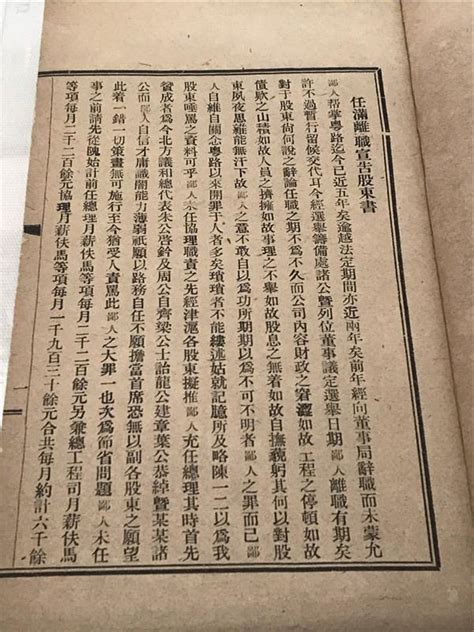 任滿離職宣告股東書
鄙人帮掌粵路迄今已近五年矣逾越法定期間亦近兩年矣前年經向董事局辭職而未蒙允
許不過暫行留候交代耳今經選舉籌備處諸公曁列位董事議定選舉日期鄙人離職有期矣
對于股東尙何說之辭論任職之期不爲不久而公司內容財政之窘澀如故工程之停頓如故
債欵之山積如故人員之擠擁如故事理之不舉如故股息之無着如故自撫藐躬其何以對股
東夙夜思維能無汗下故鄙人之意不敢自以爲功所期期以爲不可不明者鄙人之罪而已鄙
人自維自關念粵路以來開罪于人者多矣瑣瑣者不能縷述姑就記臆所及略陳一二以爲我
股東唾罵之資料可乎鄙人未任協理職責之先經津滬各股東擬推鄙人充任總理其時首先
贊成者爲今北方議和總代表朱公啓鈐及周公自齊梁公士詒龍公建章葉公恭綽曁某某諸
公而鄙人自信才庸識闇能力薄弱祇願以路務自任不願擔當首席恐無以副各股東之願望
此着一錯一切策畫無可施行至今猶受人責罵此鄙人之大罪一也次爲節省問題鄙人未任
事之前請先從隗始計前任總理月薪伕馬等項每月二千二百餘元另兼總工程司月薪伕馬
等項每月二千二百餘元協理月薪伕馬等項每月一千九百三十餘元合共每月約計六千餘
一